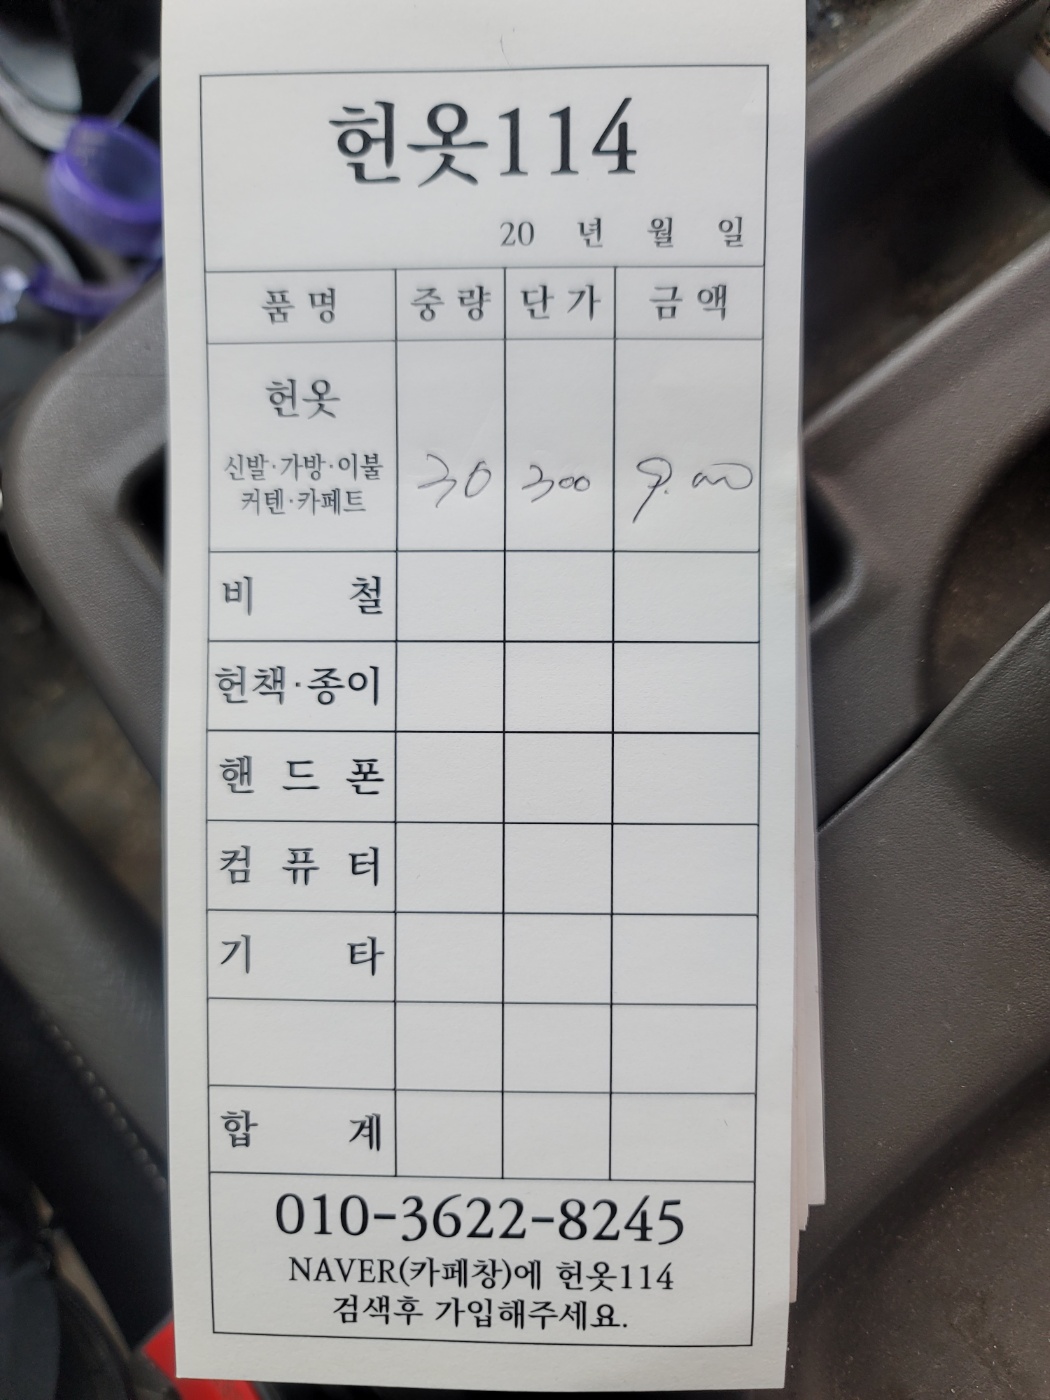 헌옷114
20 년 월 일
품명 중량 단가 금액
헌옷
신발·가방·이불 30 300 9.000
커텐·카페트
비 철
헌책·종이
핸드폰
컴퓨터
기 타
합 계
010-3622-8245
NAVER(카페창)에 헌옷114
검색후 가입해주세요.